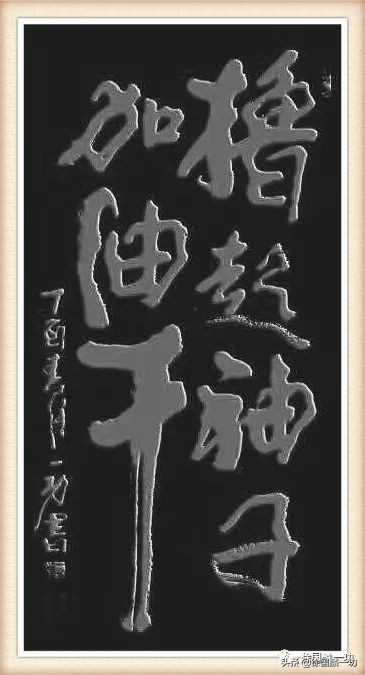 撸起袖子
加油干
丁酉 月一功書
头条 一功